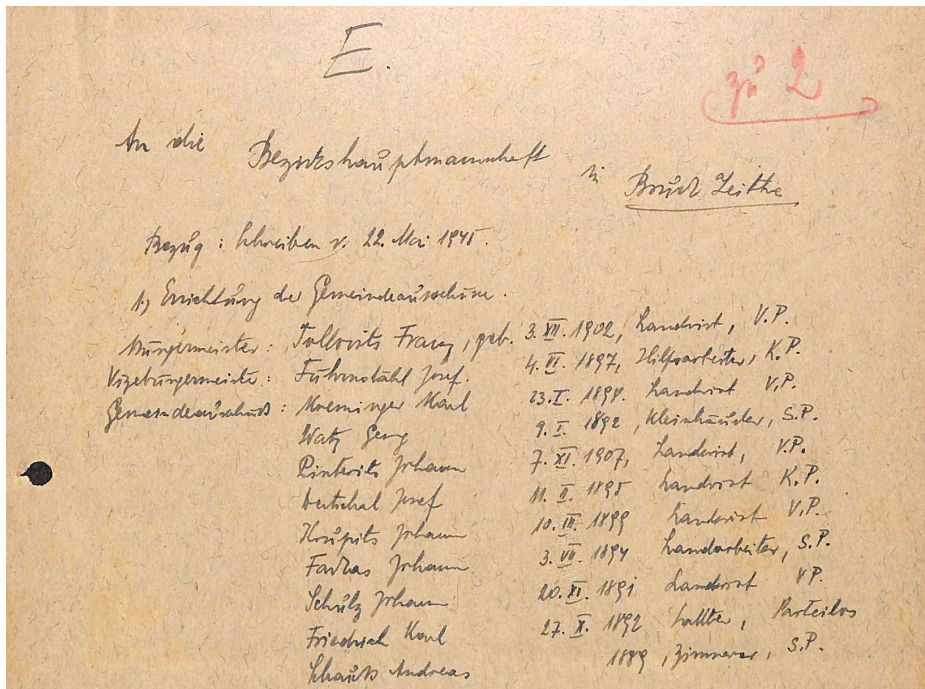 E.
zu 2
An die Bezirkshauptmannschaft
in Bruck Leitha
Bezug: Schreiben v. 22. Mai 1945.
1.) Errichtung der Gemeindeausschüsse.
Bürgermeister: Tallovits Franz, geb. 3. XII. 1902, Landwirt, V.P.
Vizebürgermeister: Josef. 4. VI. 1897, Hilfsarbeiter, K.P.
Gemeindeausschuss: Karl 23. I. 1894. Landwirt V.P.
Georg 9. I. 1892, Kleinhäusler, S.P.
Pinterits Johann 7. XI. 1907, Landwirt, V.P.
Josef 11. II. 1895 Landwirt K.P.
Krupits Johann 10. 1899 Landwirt V.P.
Johann 3. VII. 1894 Landarbeiter, S.P.
Schulz Johann 20. XI. 1891 Landwirt VP.
Friedrich Karl 27. X. 1892 Parteilos
Andreas 1889, Zimmerer, S.P.